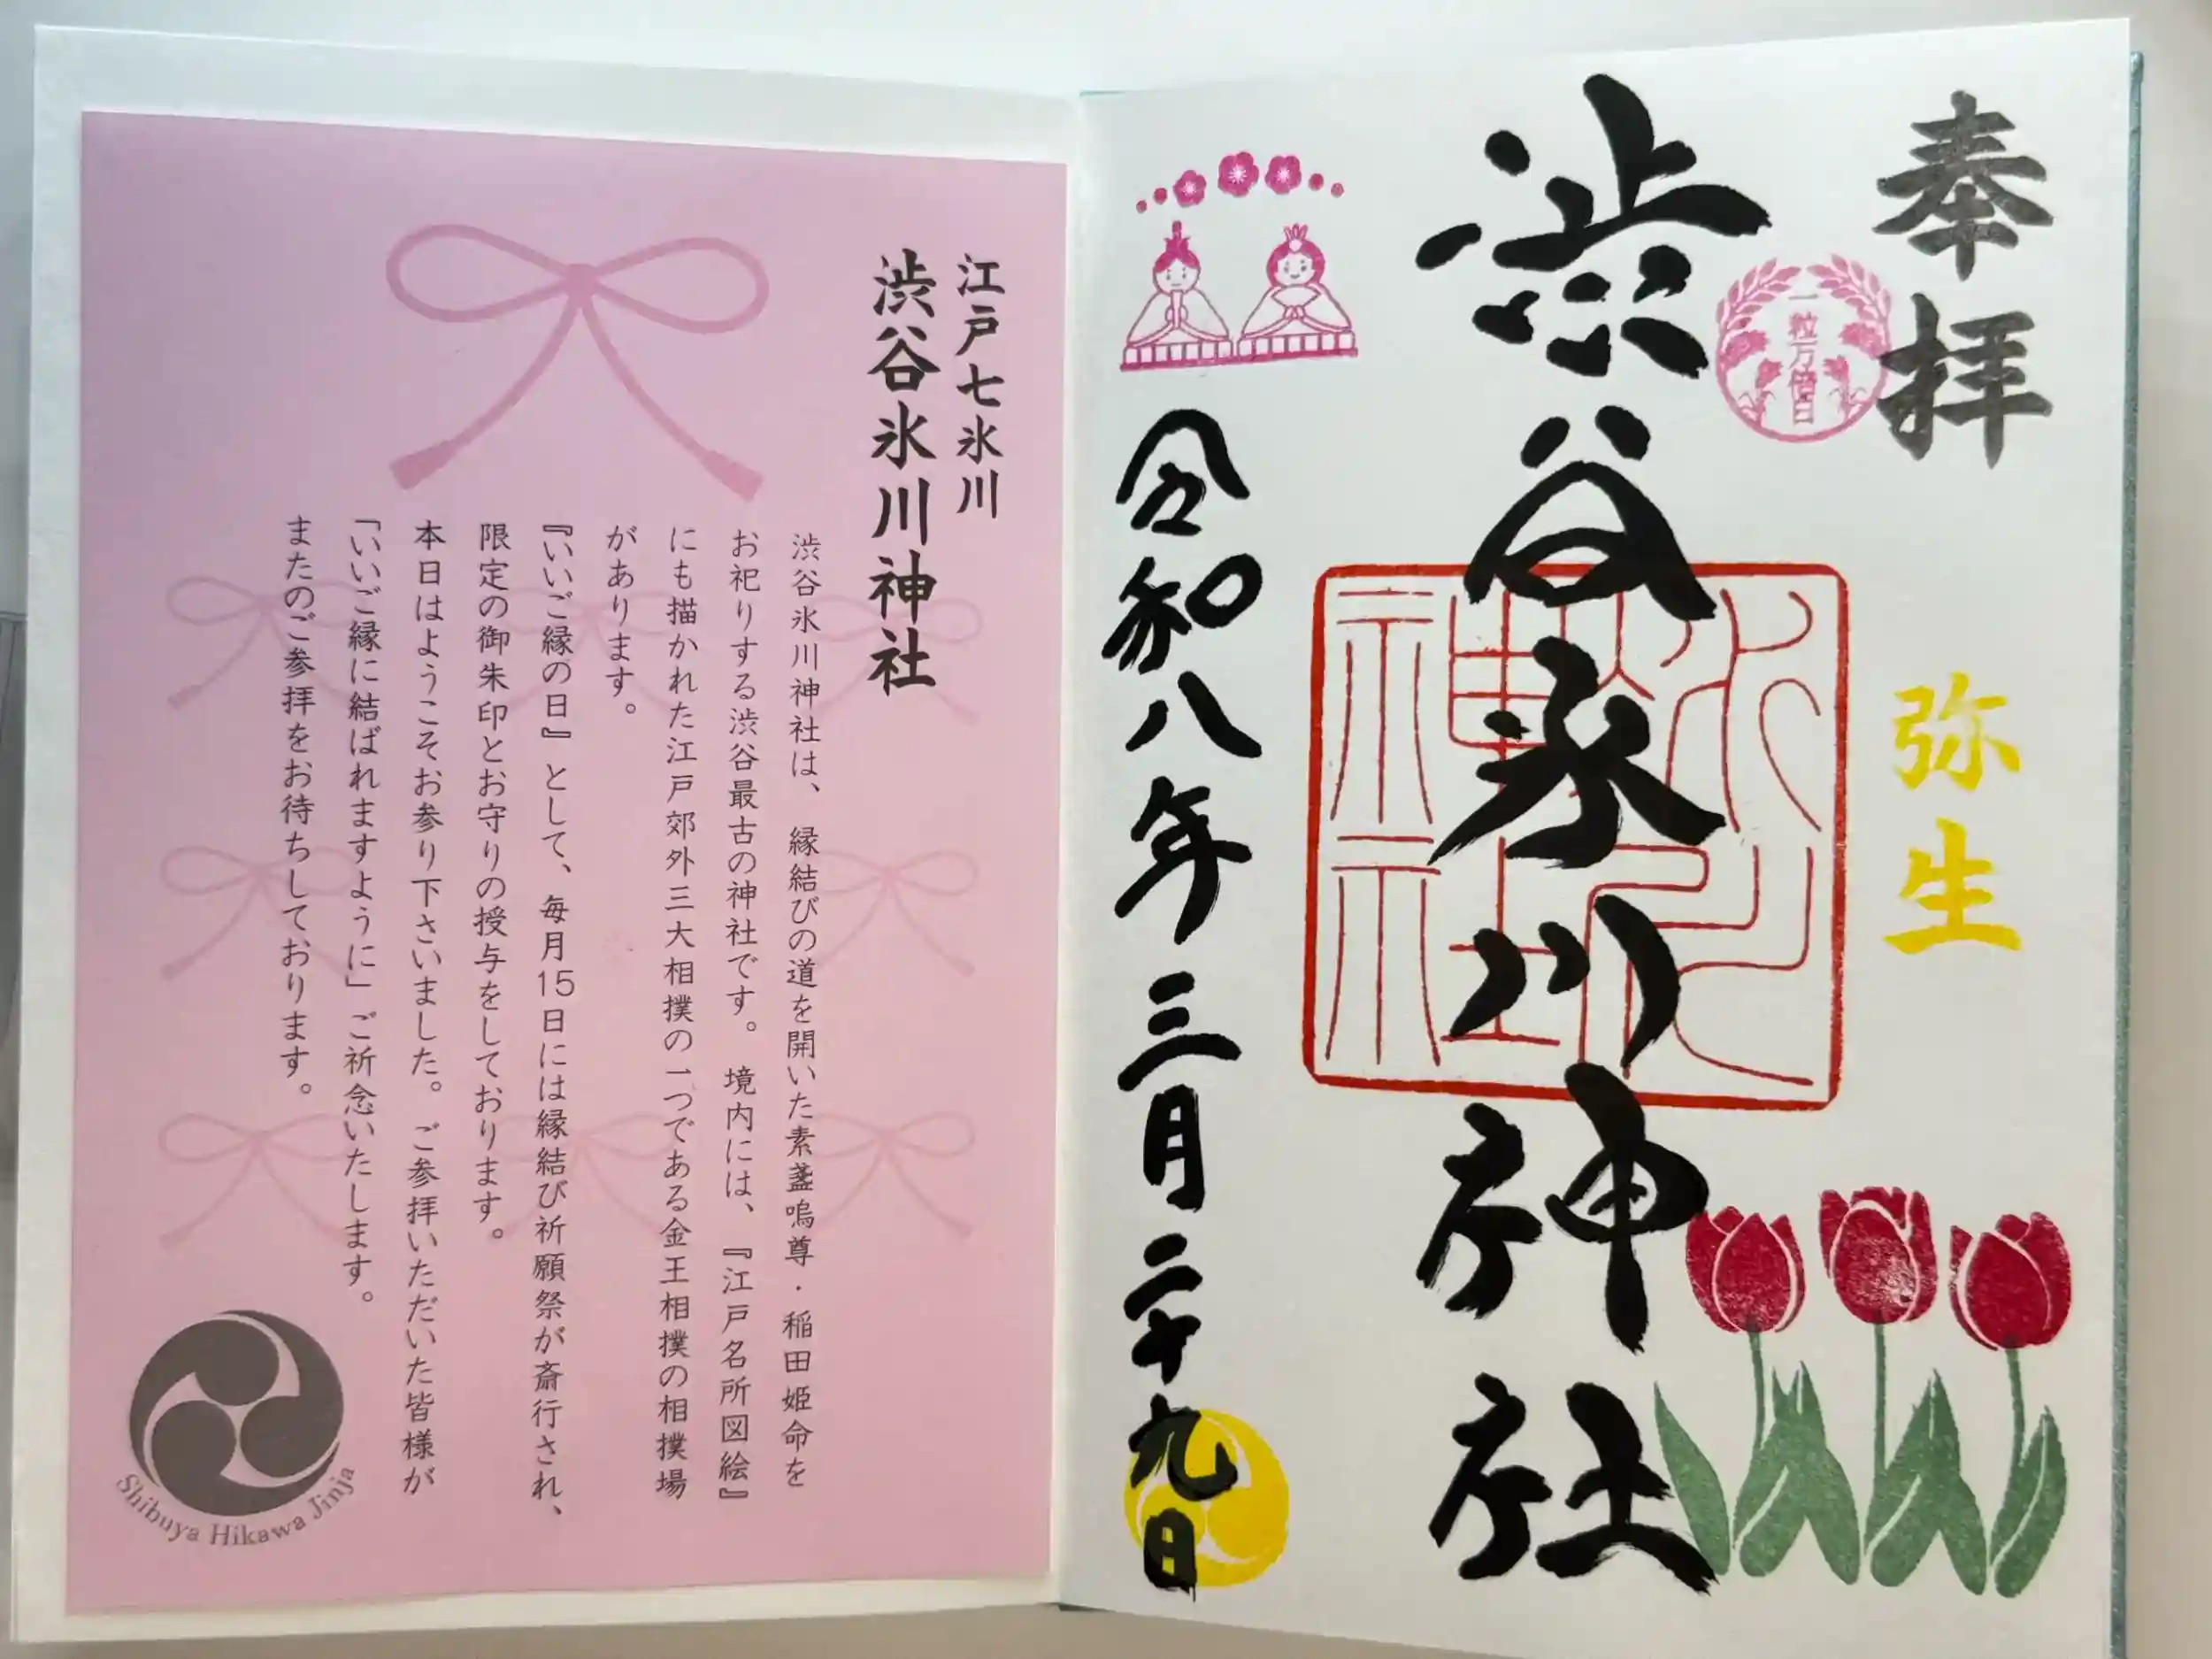 奉拝
一粒万倍日
弥生
渋谷氷川神社
氷川神社
令和八年三月二十九日
江戸七氷川
渋谷氷川神社
渋谷氷川神社は、縁結びの道を開いた素盞嗚尊・稲田姫命を
お祀りする渋谷最古の神社です。境内には、『江戸名所図絵』
にも描かれた江戸郊外三大相撲の一つである金王相撲の相撲場
があります。
『いいご縁の日』として、毎月15日には縁結び祈願祭が斎行され、
限定の御朱印とお守りの授与をしております。
本日はようこそお参り下さいました。ご参拝いただいた皆様が
「いいご縁に結ばれますように」ご祈念いたします。
またのご参拝をお待ちしております。
Shibuya Hikawa Jinja